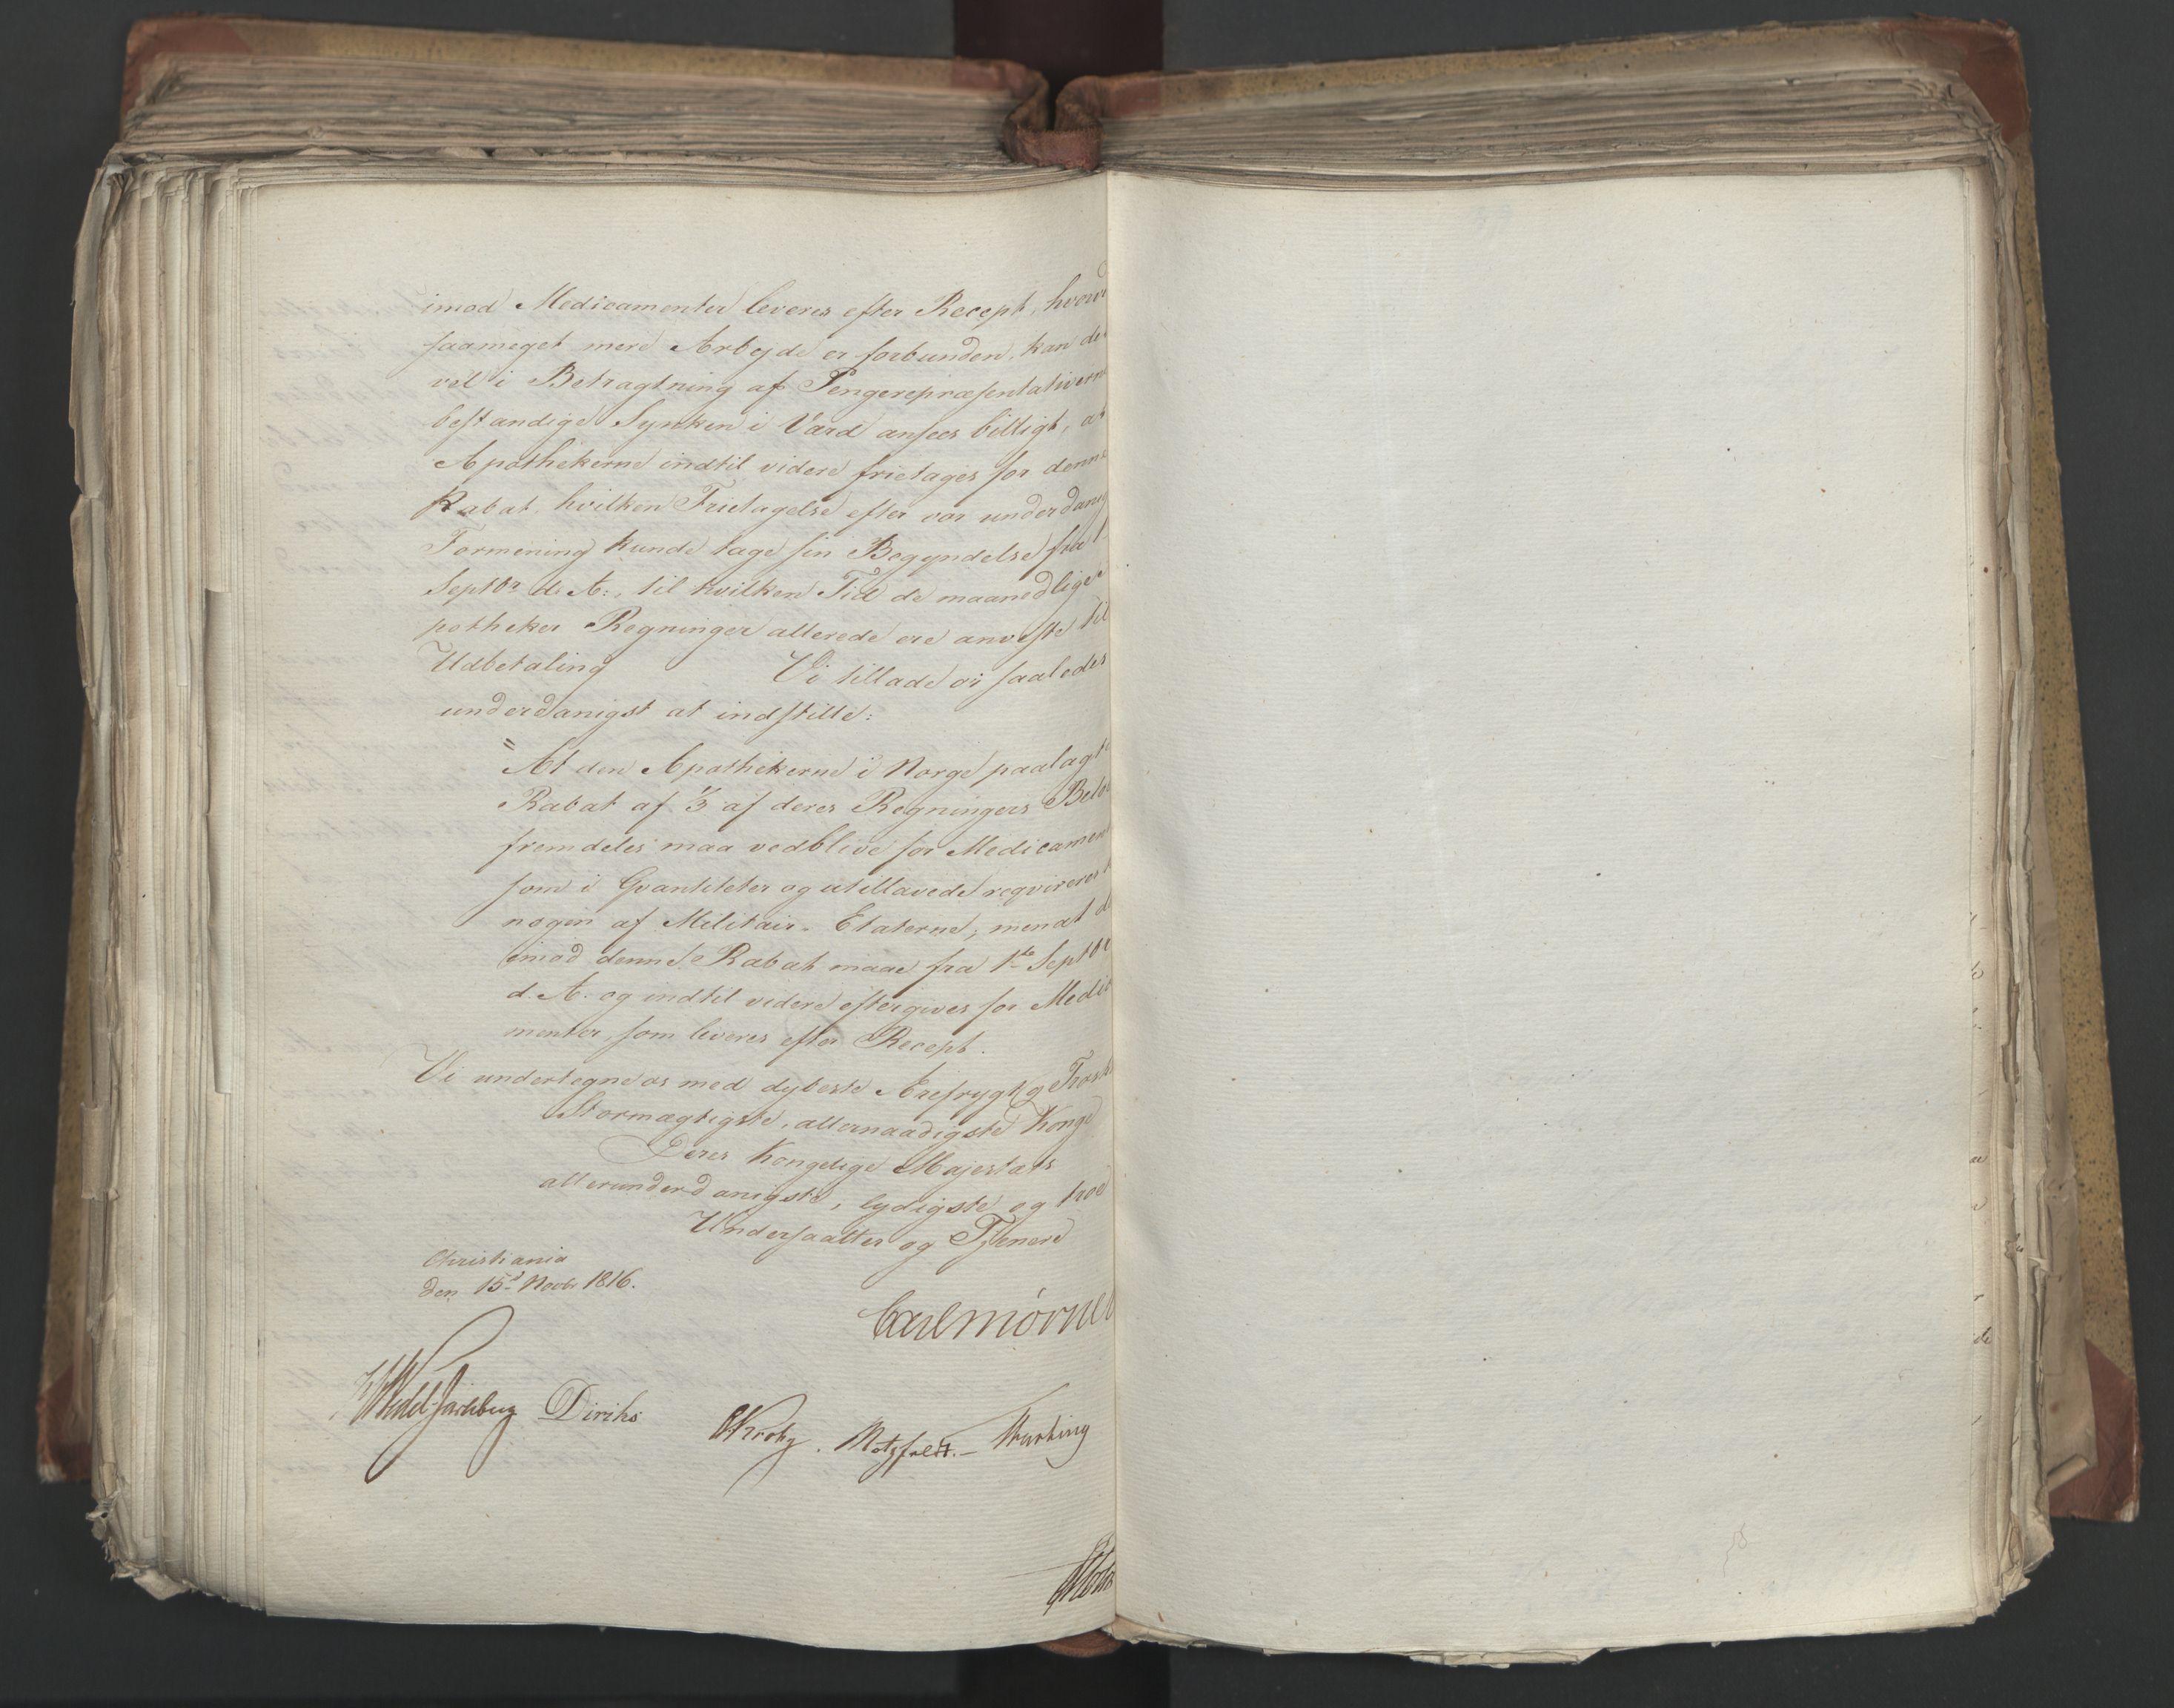 imod Medicamenter leveres efter Recept, hvorv
saameget mere Arbejde er forbunden, kan de
vel i Betragtning af Pengerepræsentativerne
bestandige Synken i Værd ansees billigt, at
Apothekerne indtil videre frietages for denne
Rabat, hvilken Frietagelse efter vor underdanig
Formening kunde tage sin Begyndelse fra 1
Septbr d. A:, til hvilken Tid de maanedlige A
potheker Regninger allerede ere anviste til
Udbetaling Vi tillade os saaledes
underdanigst at indstille:
"At den Apothekerne i Norge paalagte
Rabat af 1/3 af deres Regningers Belø
fremdeles maa vedblive for Medicamen
som i Qvantiteter og utillavede reqvireres t
nogen af Militair-Etaterne; men at d
imod denne Rabat maae fra 1ste Septbr
d. A. og indtil videre eftergives for Medic
menter, som leveres efter Recept.
Vi undertegne os med dybeste Ærefrygt og Trosk
Stormægtigste, allernaadigste Konge
Deres Kongelige Majestæts
allerunderdanigste, lydigste og troe
Undersaatter og Tjenere
Christiania
den 15d Novbr 1816.
Carl Mörner
Wedel Jarlsberg Diriks
Krohg. Motzfeldt. —